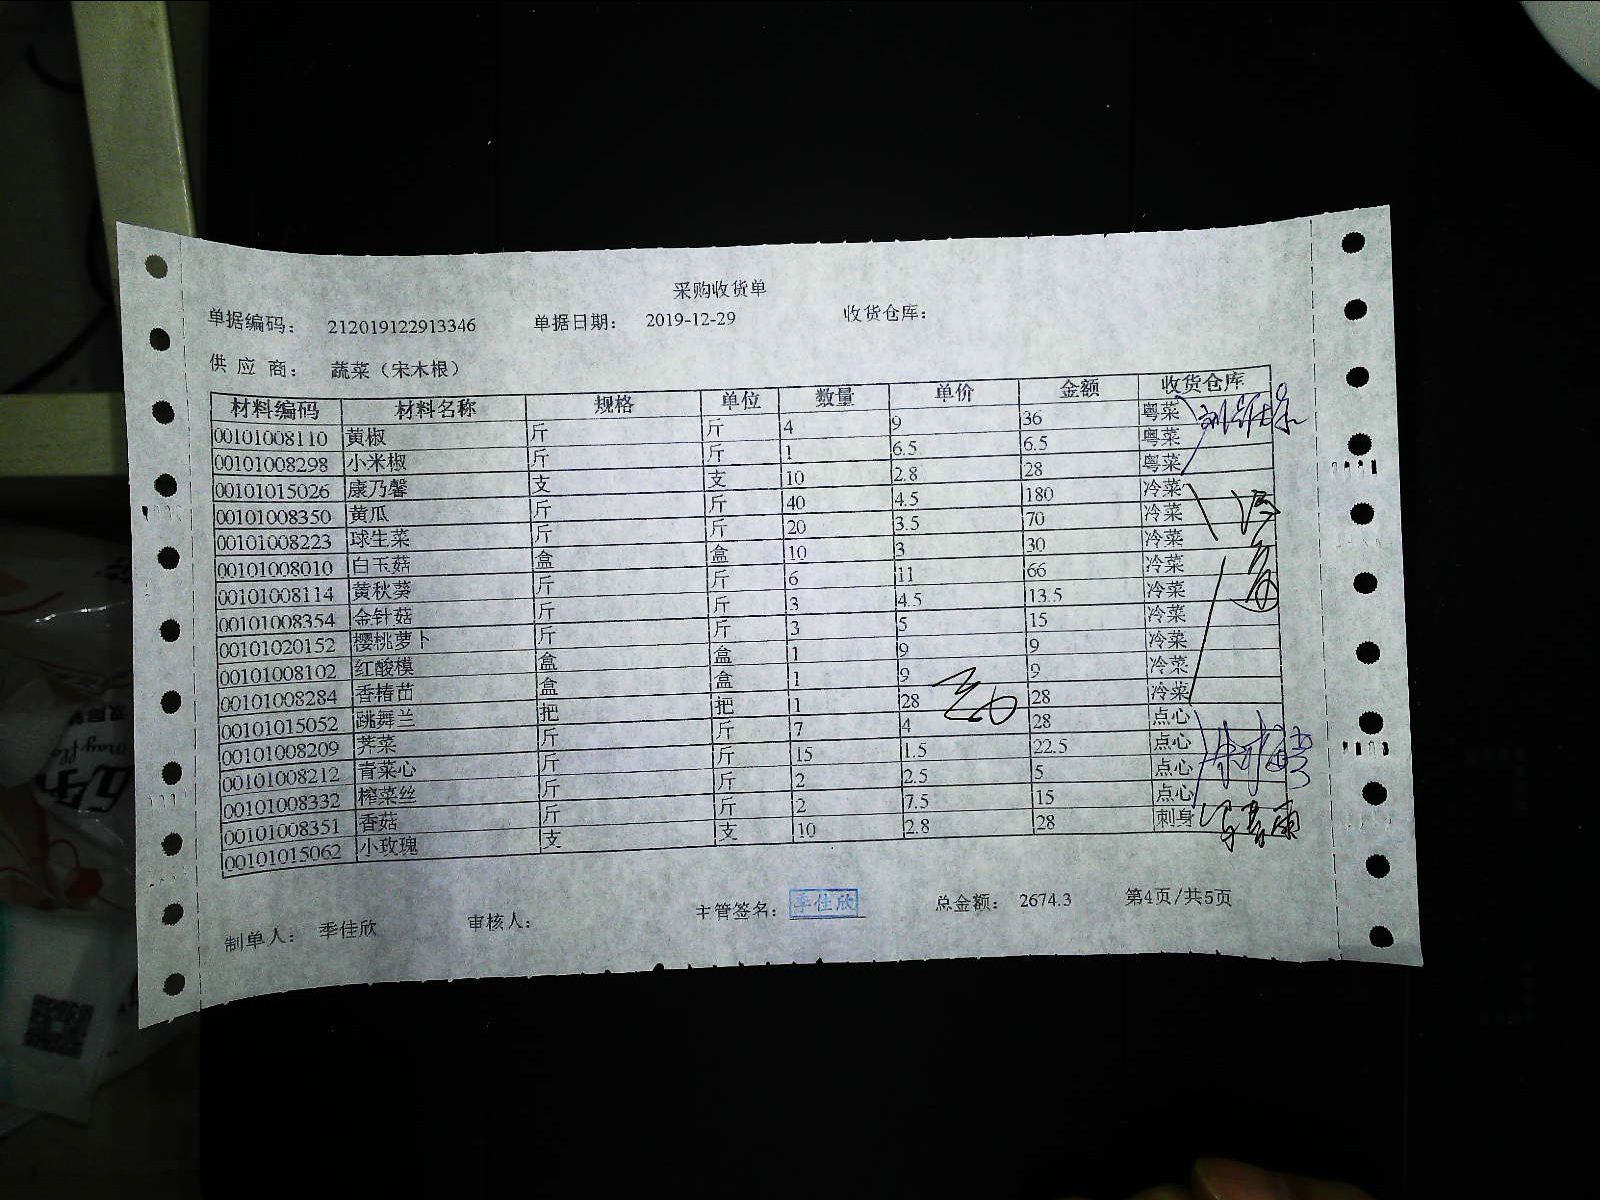 采购收货单
单据编码： 212019122913346 单据日期： 2019-12-29 收货仓库：
供 应 商： 蔬菜（宋木根）
材料编码 材料名称 规格 单位 数量 单价 金额 收货仓库
00101008110 黄椒 斤 斤 4 9 36 粤菜
00101008298 小米椒 斤 斤 1 6.5 6.5 粤菜
00101015026 康乃馨 支 支 10 2.8 28 粤菜
00101008350 黄瓜 斤 斤 40 4.5 180 冷菜
00101008223 球生菜 斤 斤 20 3.5 70 冷菜
00101008010 白玉菇 盒 盒 10 3 30 冷菜
00101008114 黄秋葵 斤 斤 6 11 66 冷菜
00101008354 金针菇 斤 斤 3 4.5 13.5 冷菜
00101020152 樱桃萝卜 斤 斤 3 5 15 冷菜
00101008102 红酸模 盒 盒 1 9 9 冷菜
00101008284 香椿苗 盒 盒 1 9 9 冷菜
00101015052 跳舞兰 把 把 1 28 28 冷菜
00101008209 荠菜 斤 斤 7 4 28 点心
00101008212 青菜心 斤 斤 15 1.5 22.5 点心
00101008332 榨菜丝 斤 斤 2 2.5 5 点心
00101008351 香菇 斤 斤 2 7.5 15 点心
00101015062 小玫瑰 支 支 10 2.8 28 刺身
制单人： 季佳欣 审核人： 主管签名： 季佳欣 总金额： 2674.3 第4页/共5页